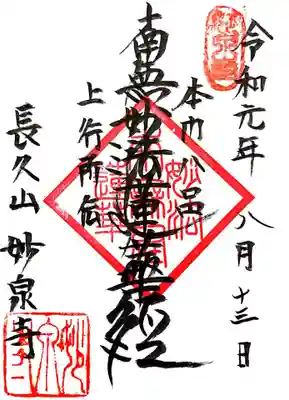 令和元年 八月十三日
本门八品
南無妙法蓮華経
上行所伝
長久山 妙泉寺
妙法
蓮華